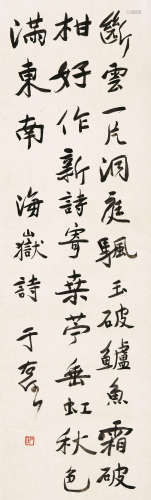 斷雲一片洞庭颿玉破鱸魚霜破
柑好作新詩寄桑苧垂虹秋色
滿東南 海嶽詩 于右任